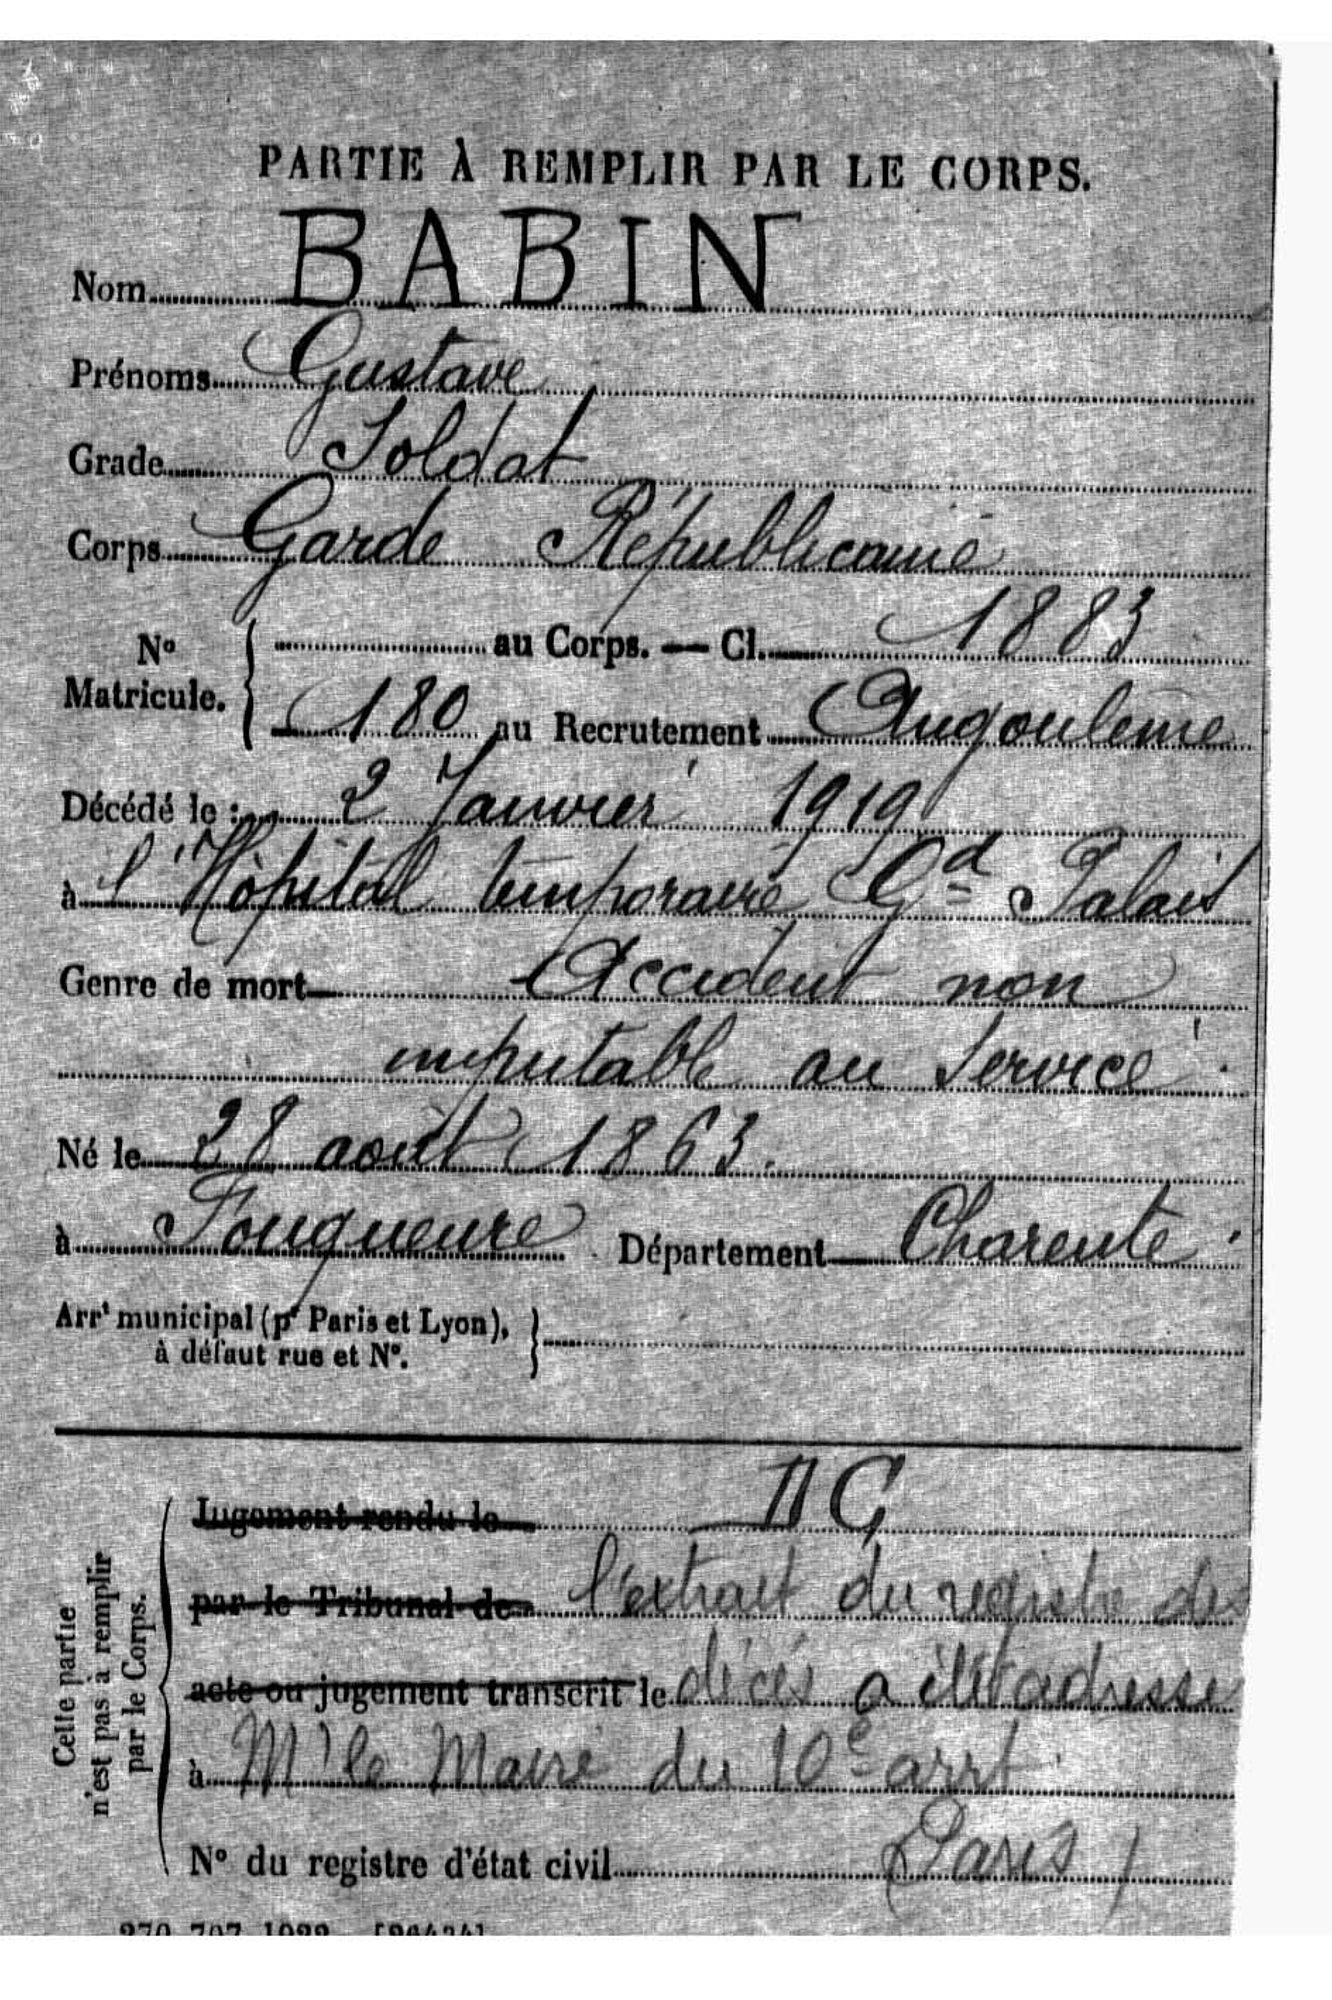 PARTIE À REMPLIR PAR LE CORPS.
Nom BABIN
Prénoms Gustave
Grade Soldat
Corps Garde Républicaine
No Matricule. { au Corps. — Cl. 1883
180 au Recrutement Angoulême
Décédé le : 2 Janvier 1919
à l'Hôpital temporaire Gd Palais
Genre de mort Accident non
imputable au Service.
Né le 28 août 1863.
à Fouqueure Département Charente.
Arrt municipal (pr Paris et Lyon), à défaut rue et No. }
Cette partie n'est pas à remplir par le Corps.
Jugement rendu le
par le Tribunal de l'extrait du registre des
acte ou jugement transcrit le décès a été adressé
à Mr le Maire du 10e arrt
No du registre d'état civil Paris